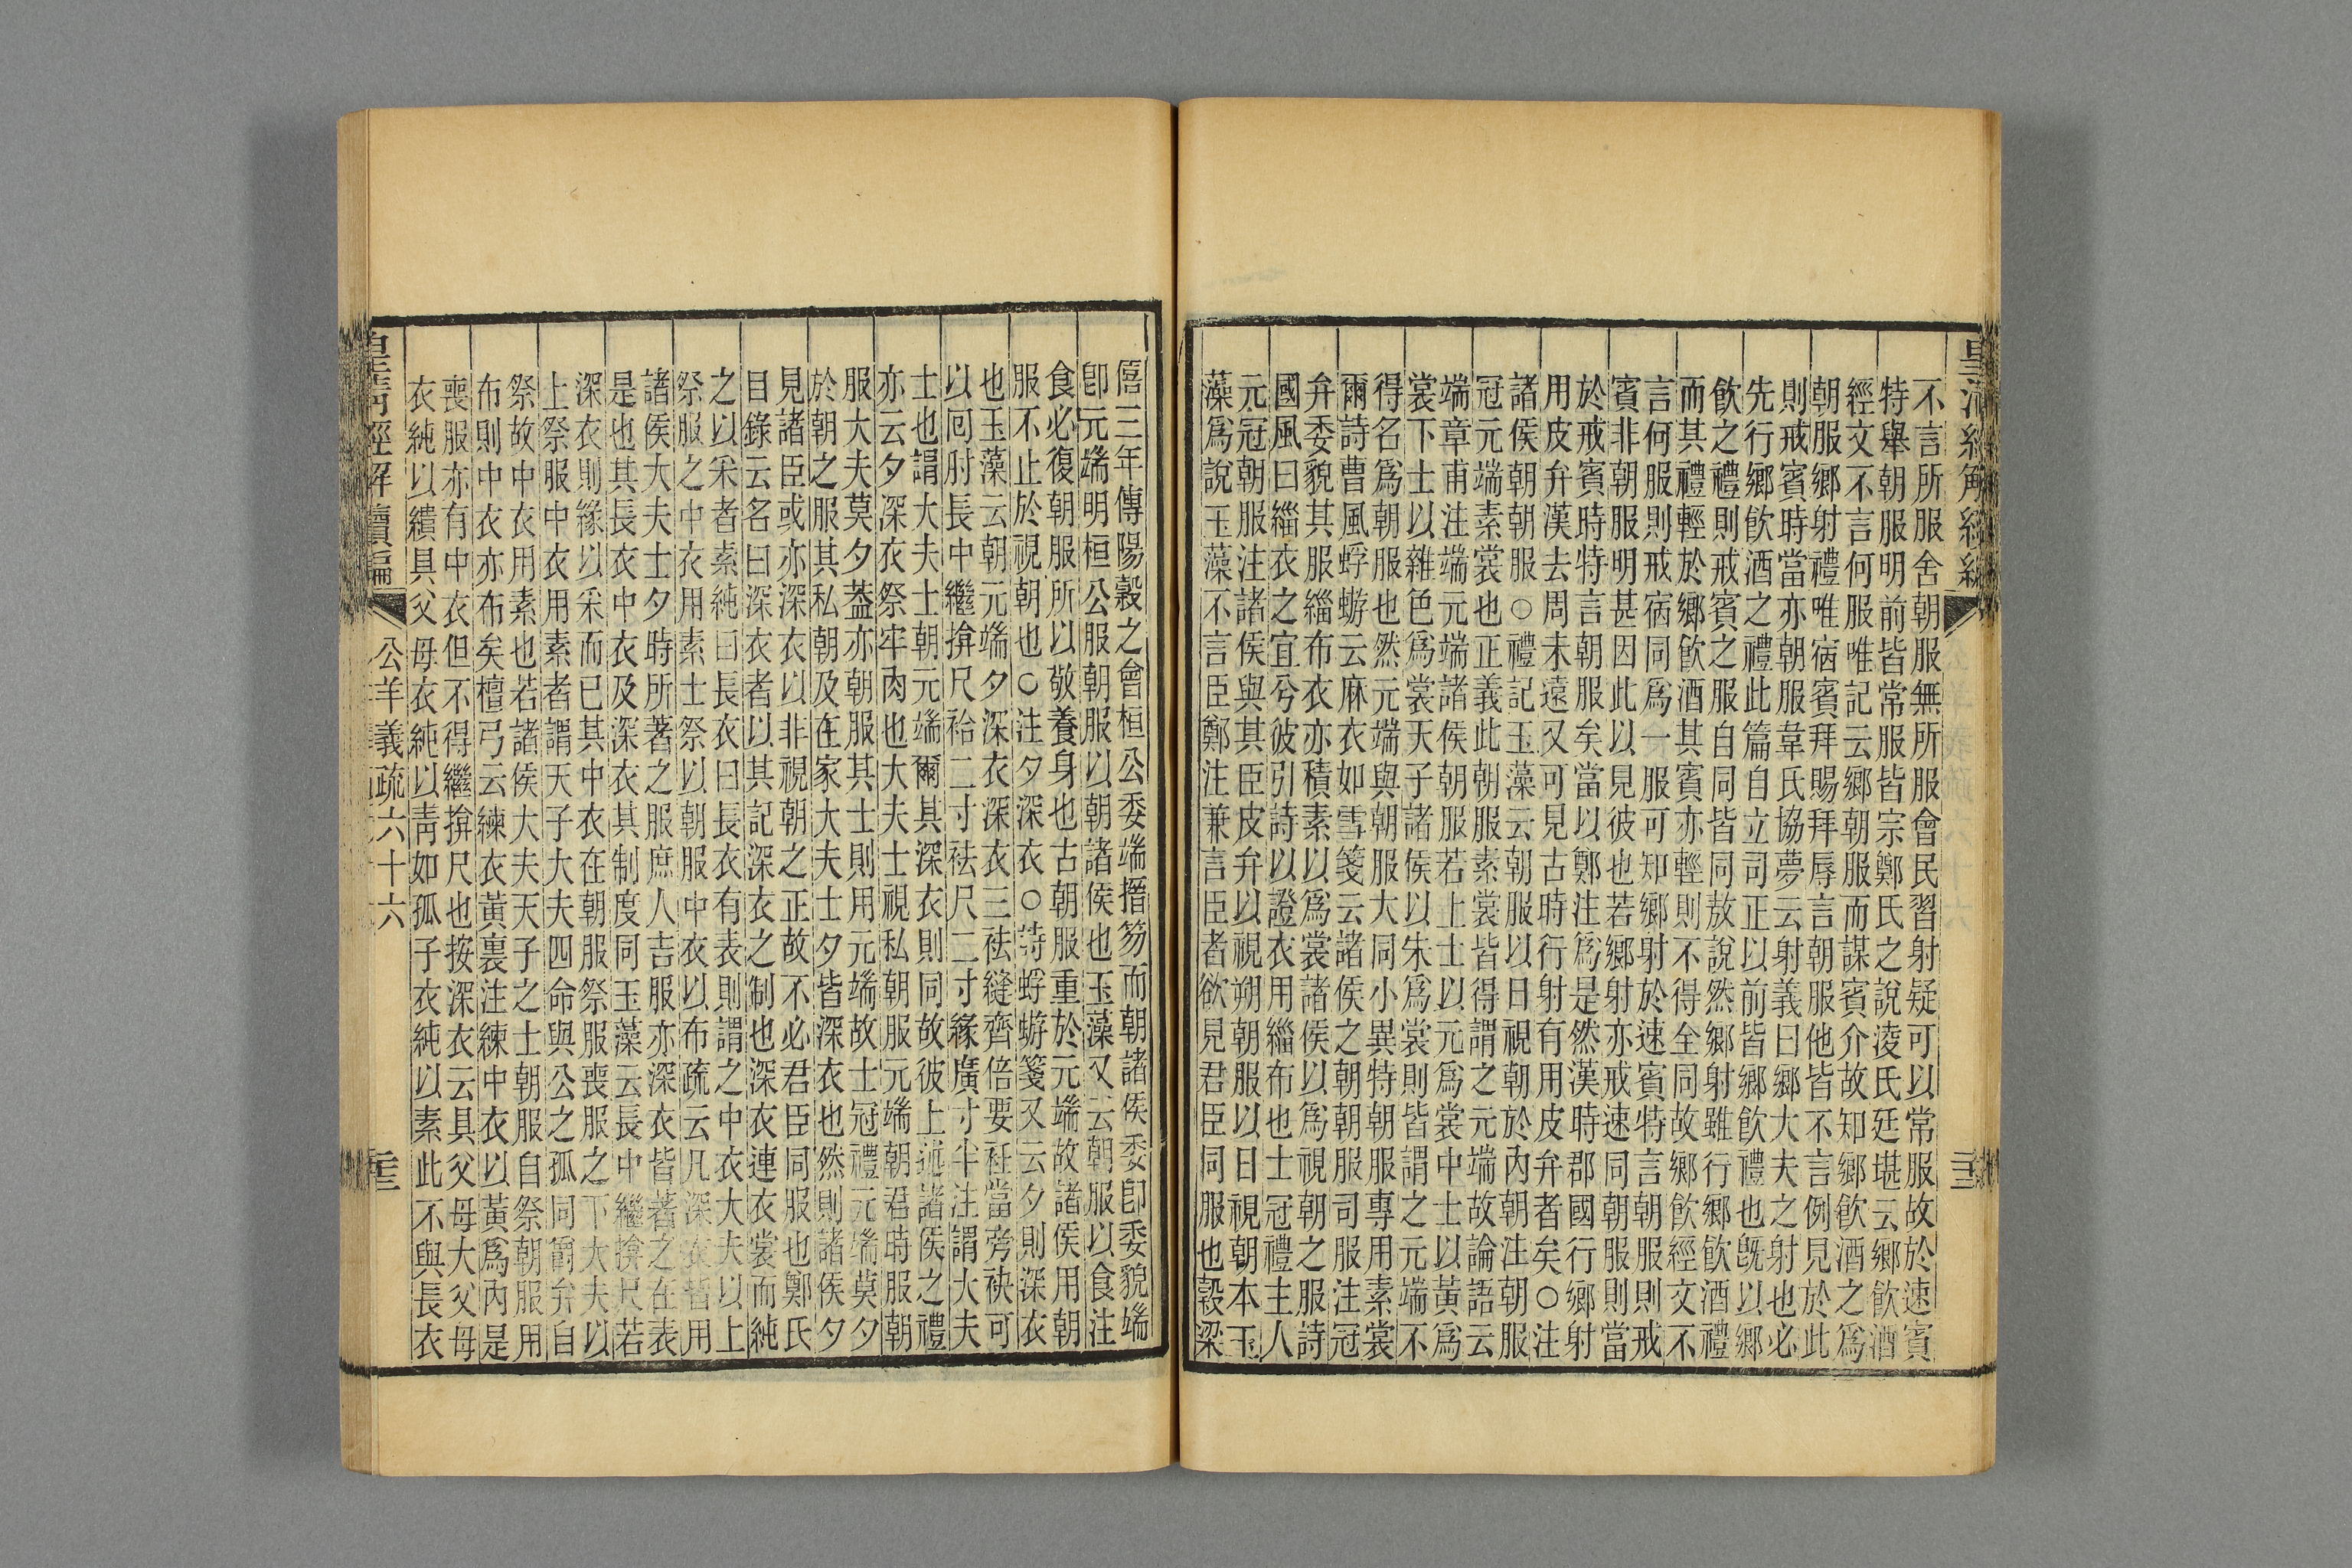 不言所服舍朝服無所服會民習射疑可以常服故於速賓
特舉朝服明前皆常服皆宗鄭氏之說淩氏廷堪云鄉飮酒
經文不言何服唯記云鄉朝服而謀賓介故知鄉飮酒之爲
朝服鄉射禮唯宿賓拜賜拜辱言朝服他皆不言例見於此
則戒賓時當亦朝服韋氏協夢云射義曰鄉大夫之射也必
先行鄉飮酒之禮此篇自立司正以前皆鄉飮禮也旣以鄉
飮之禮則戒賓之服自同皆同敖說然鄉射雖行鄉飮酒禮
而其禮輕於鄉飮酒其賓亦輕則不得全同故鄉飮經文不
言何服則戒宿同爲一服可知鄉射於速賓特言朝服則戒
賓非朝服明甚因此以見彼也若鄉射亦戒速同朝服則當
於戒賓時特言朝服矣當以鄭注爲是然漢時郡國行鄉射
用皮弁漢去周未遠又可見古時行射有用皮弁者矣○注
諸侯朝朝服○禮記玉藻云朝服以日視朝於內朝注朝服
冠元端素裳也正義此朝服素裳皆得謂之元端故論語云
端章甫注端元端諸侯朝服若上士以元爲裳中士以黃爲
裳下士以雜色爲裳天子諸侯以朱爲裳則皆謂之元端不
得名爲朝服也然元端與朝服大同小異特朝服專用素裳
爾詩曹風蜉蝣云麻衣如雪箋云諸侯之朝朝服司服注冠
弁委貌其服緇布衣亦積素以爲裳諸侯以爲視朝之服詩
國風曰緇衣之宜兮彼引詩以證衣用緇布也士冠禮主人
元冠朝服注諸侯與其臣皮弁以視朔朝服以日視朝本玉
藻爲說玉藻不言臣鄭注兼言臣者欲見君臣同服也穀梁
僖三年傳陽穀之會桓公委端搢笏而朝諸侯委卽委貌端
卽元端明桓公服朝服以朝諸侯也玉藻又云朝服以食注
食必復朝服所以敬養身也古朝服重於元端故諸侯用朝
服不止於視朝也○注夕深衣○詩蜉蝣箋又云夕則深衣
也玉藻云朝元端夕深衣深衣三袪縫齊倍要衽當旁袂可
以回肘長中繼揜尺袷二寸袪尺二寸緣廣寸半注謂大夫
士也謂大夫士朝元端爾其深衣則同故彼上述諸侯之禮
亦云夕深衣祭牢肉也大夫士視私朝服元端朝君時服朝
服大夫莫夕葢亦朝服其士則用元端故士冠禮元端莫夕
於朝之服其私朝及在家大夫士夕皆深衣也然則諸侯夕
見諸臣或亦深衣以非視朝之正故不必君臣同服也鄭氏
目錄云名曰深衣者以其記深衣之制也深衣連衣裳而純
之以采者素純曰長衣曰長衣有表則謂之中衣大夫以上
祭服之中衣用素士祭以朝服中衣以布疏云凡深衣皆用
諸侯大夫士夕時所著之服庶人吉服亦深衣皆著之在表
是也其長衣中衣及深衣其制度同玉藻云長中繼揜尺若
深衣則緣以采而已其中衣在朝服祭服喪服之下大夫以
上祭服中衣用素者謂天子大夫四命與公之孤同爵弁自
祭故中衣用素也若諸侯大夫天子之士朝服自祭朝服用
布則中衣亦布矣檀弓云練衣黃裏注練中衣以黃爲內是
喪服亦有中衣但不得繼揜尺也按深衣云具父母大父母
衣純以繢具父母衣純以靑如孤子衣純以素此不與長衣
皇淸經解續編 公羊義疏六十六